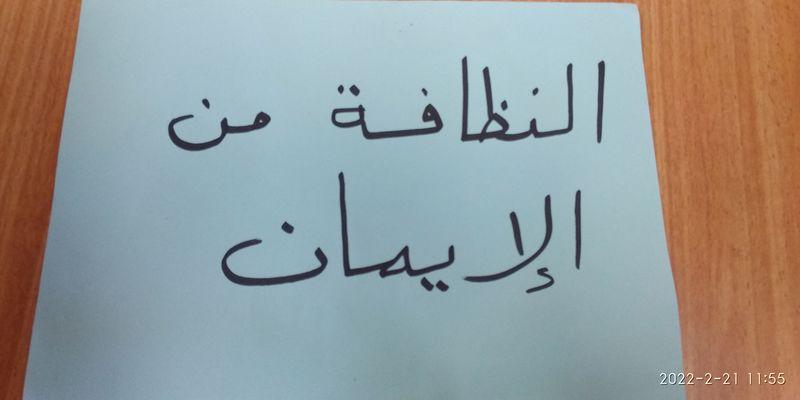 النظافة من
الإيمان
2022-2-21 11:55